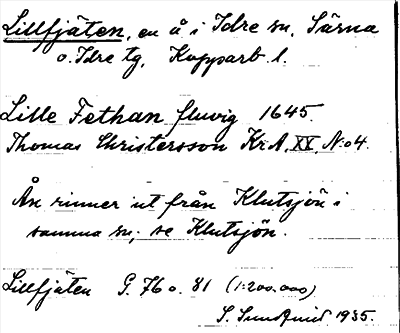 Lillfjäten, en å i Idre sn, Särna
o. Idre tg, Kopparb. l.
Lille Fethan fluvig 1645.
Thomas Christersson Kr.A. XX, N:o 4.
Ån rinner ut från Klutsjön i
samma sn; se Klutsjön.
Lillfjäten G. 76 o. 81 (1:200.000)
S. Sundqvist 1935.